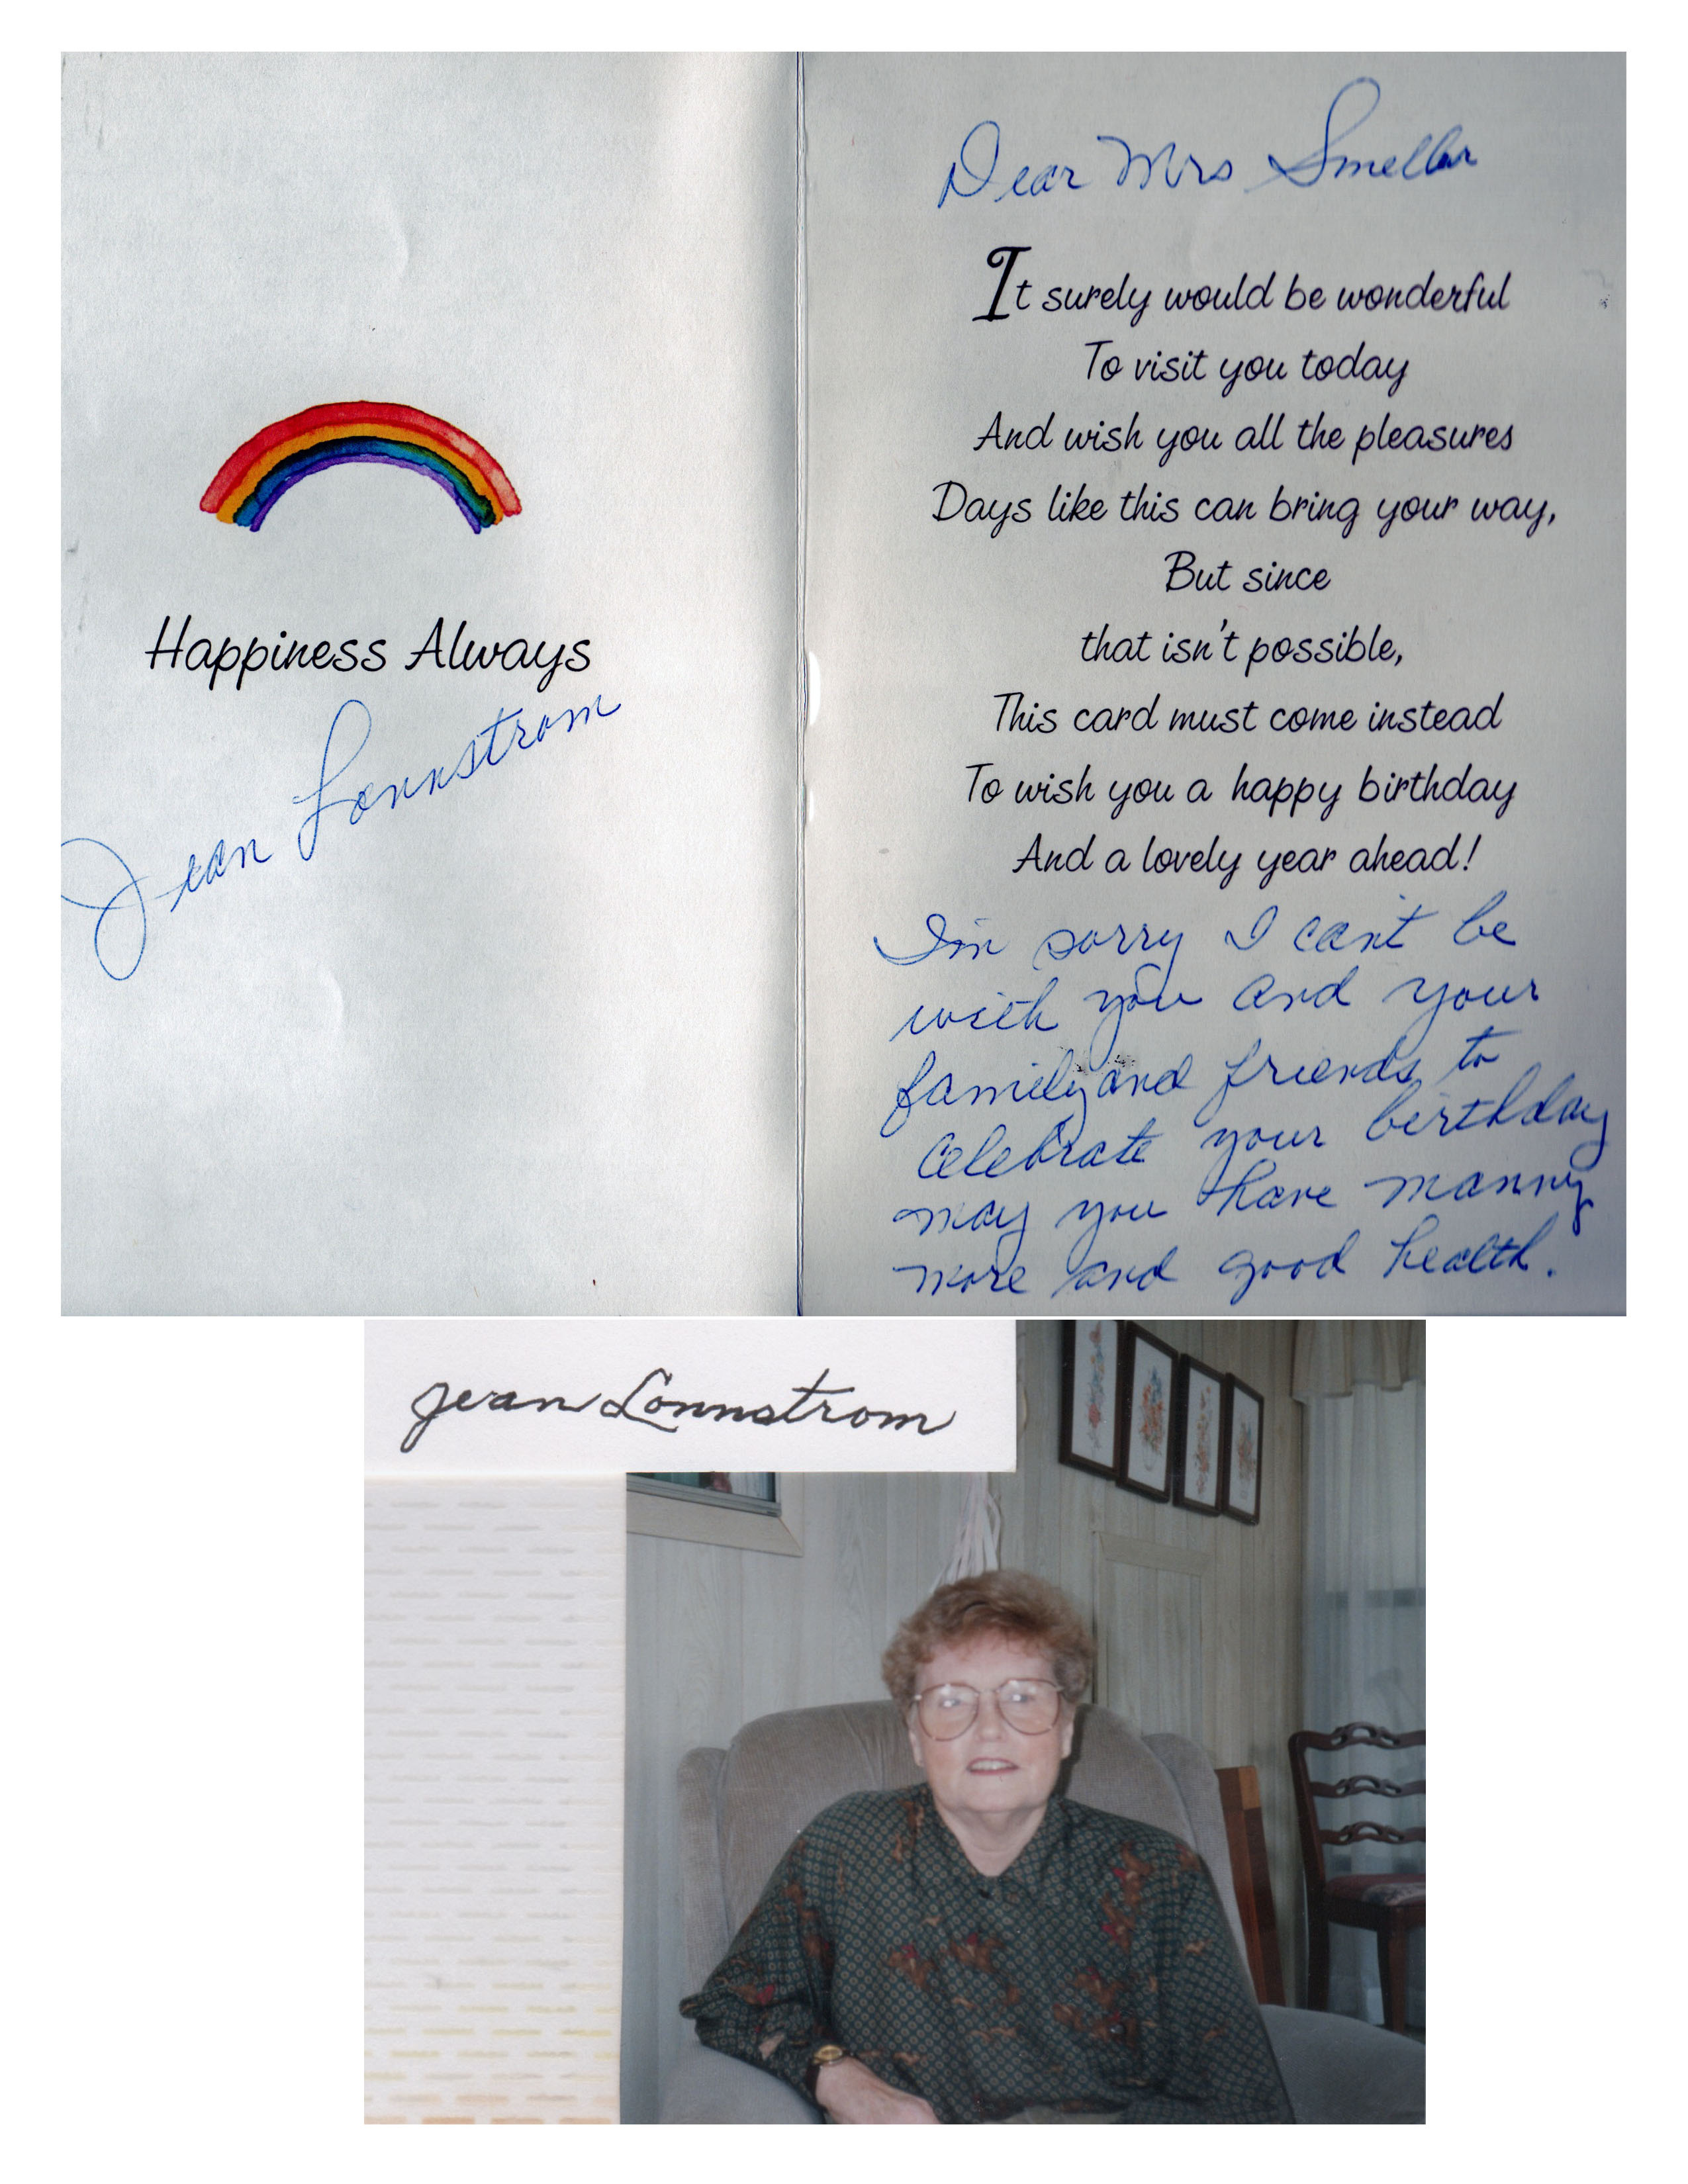 Happiness Always
Jean Lonnstrom
Dear Mrs
It surely would be wonderful
To visit you today
And wish you all the pleasures
Days like this can bring your way,
But since
that isn't possible,
This card must come instead
To wish you a happy birthday
And a lovely year ahead!
I'm sorry I can't be
with you and your
family and friends to
Celebrate your birthday
may you have manny
more and good health.
Jean Lonnstrom